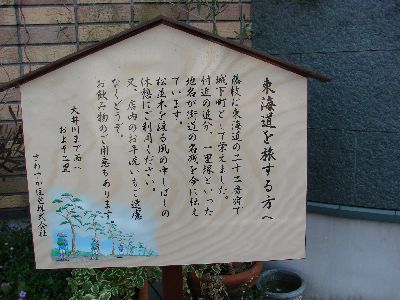 東海道を旅する方へ
藤枝は東海道の二十二番宿で
城下町として栄えました。
付近の追分、一里塚といった
地名が街道の名残を今に伝え
ています。
松並木を渡る風の中しばしの
休憩にご利用ください。
又、店内のお手洗いもご遠慮
なくどうぞ。
お飲み物のご用意もあります。
大井川まで西へ
およそ二里
さわやか住宅株式会社